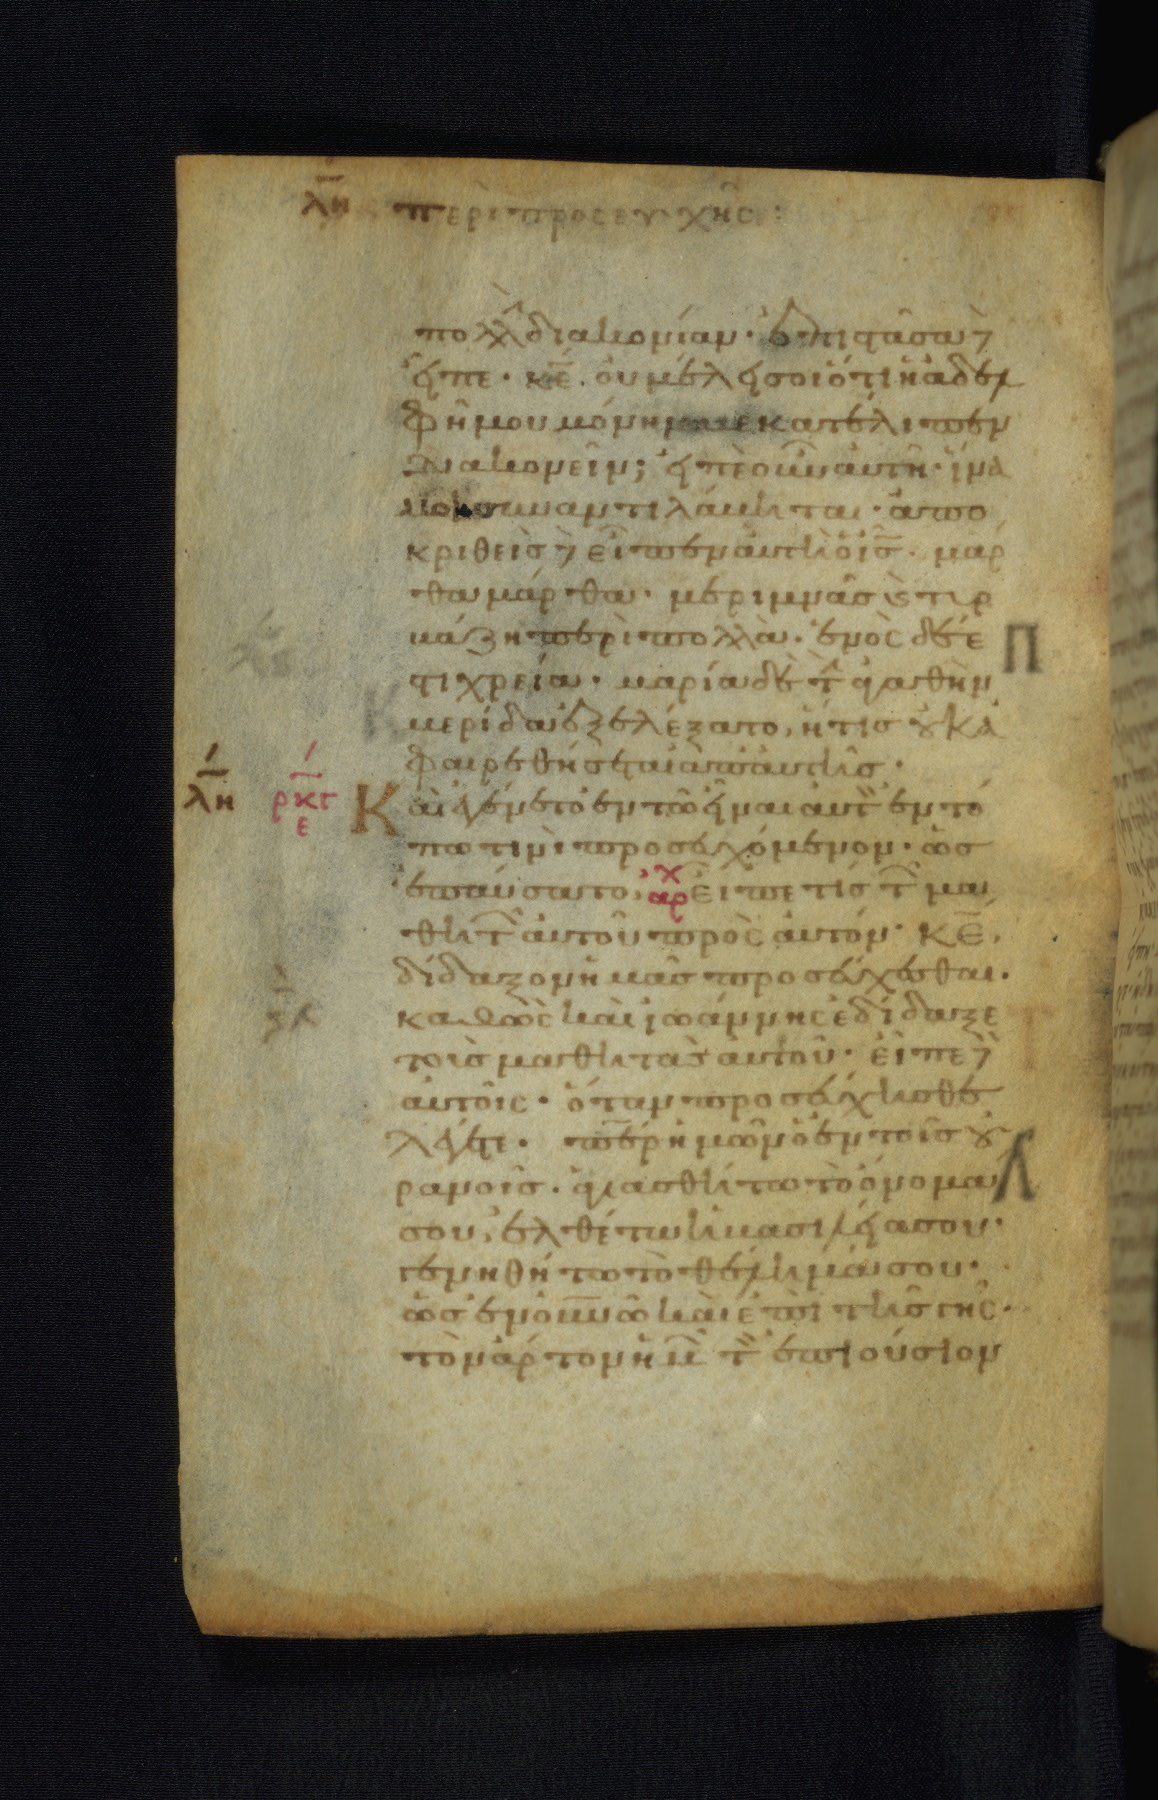 λη περι προσευχῆς :
πολλὴν διακονίαν· ἐπιστᾶσα δὲ
εἶπε· κε̅. οὐ μέλει σοι ὅτι ἡ ἀδελ
φή μου μόνην με κατέλιπεν
διακονεῖν; εἰπὲ οὖν αὐτῆ· ἵνα
μοι συναντιλάβηται· ἀπο
κριθεὶς δὲ εἶπεν αὐτῆ ὁ ις̅· μάρ
θα μάρθα· μεριμνᾶς καὶ τυρ
βάζη περὶ πολλὰ· ἑνὸς δέ ἐ
στι χρεία· μαρία δὲ τὴν ἀγαθὴν
μερίδα ἐξελέξατο, ἥτις οὐκ ἀ
φαιρεθήσεται ἀπ᾽ αὐτῆς·
λη ρκγ ε Και ἐγένετο ἐν τῶ εἶναι αὐτὸν ἐν τό
πω τινὶ προσευχόμενον· ὡς
ἐπαύσατο, αρχ εἶπέ τις τῶν μα
θητῶν αὐτοῦ πρὸς αὐτόν· κε̅,
δίδαξον ἡμᾶς προσεύχεσθαι·
καθὼς καὶ ἰωάννης ἐδίδαξε
τοὺς μαθητὰς αὐτοῦ· εἶπε δὲ
αὐτοῖς· ὅταν προσεύχησθε
λέγετε· περ ἡμῶν ὁ ἐν τοῖς οὐ
ρανοῖς· ἁγιασθήτω τὸ ὄνομά
σου, ἐλθέτω ἡ βασιλεία σου·
γενηθήτω τὸ θέλημά σου·
ὡς ἐν οὐνω καὶ ἐπὶ τῆς γῆς·
τὸν ἄρτον ἡμῶν τὸν ἐπιούσιον